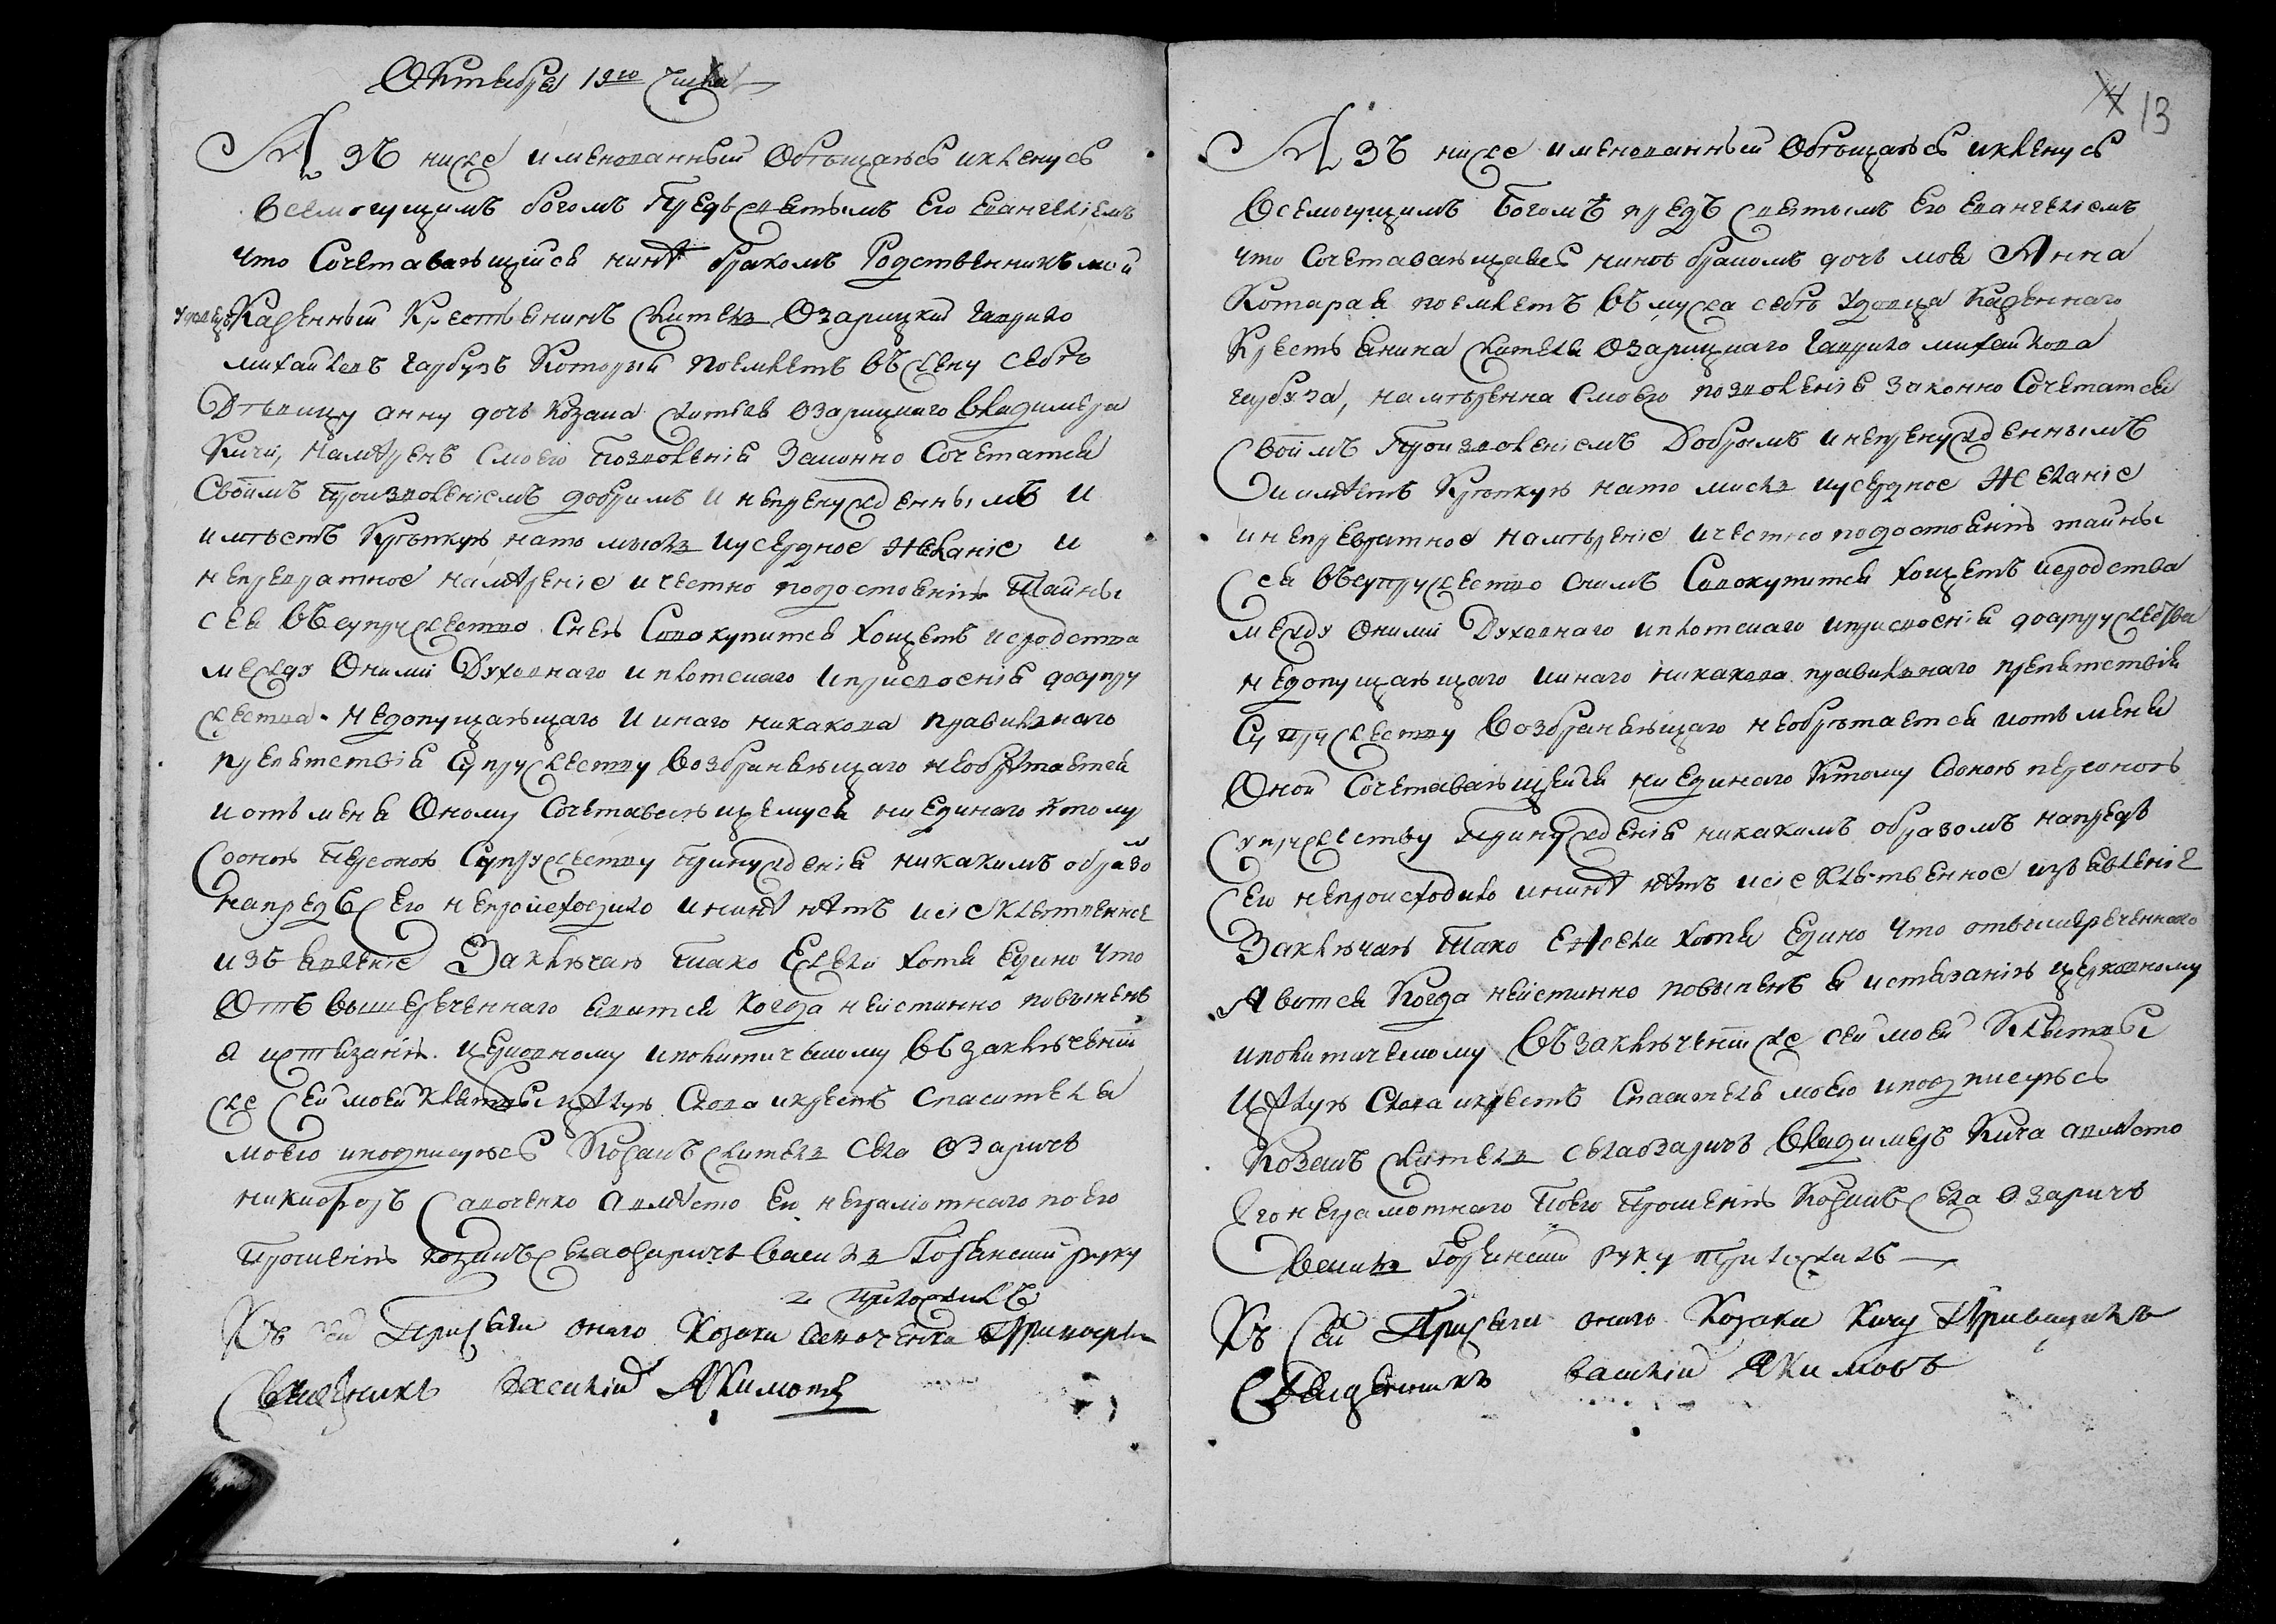 Октября 19го числа
Азъ ниже именованный обѣщаюсь и кленусь
всемогущимъ богомъ предъ святымъ его евангеліемъ
что сочетавающійся нинѣ бракомъ родственникъ мой
удовецъ казенный крестьенинъ житель озарицкій гаврило
михайловъ гарбузъ который поемлетъ въ жену себѣ
дѣвицу анну дочь козака жителя озарицкаго владимера
кичи, намѣренъ с моего позволенія законно сочетатся
своимъ произволеніемъ добримъ и непренужденнымъ и
имѣетъ крѣпкую на то мысль и усердное желаніе и
непревратное намѣреніе и честно по достоенію тайны
сея въ супружество с нею совокупится хощетъ и сродства
между оними духовнаго и плотскаго и присвоенія до супру
жества недопущающаго и инаго никакова правильнаго
препятствія супружеству возбраняющаго не обрѣтается
и отъ меня оному сочетавающемуся ни единаго к тому
с оною персоною супружеству принужденія никакимъ образо
напредъ сего непроисходило и нинѣ нѣтъ и сіе клятвенное
изъявленіе заключаю тако ежели хотя едино что
отъ вышереченнаго явится когда неистинно повыненъ
я истязанію церковному и политическому въ заключеніи
же сей моей клятвы цѣлую слова и крестъ спасителя
моего и подписуюсь козакъ житель села озаричъ
никифоръ савченко а вмѣсто его неграмотнаго по его
прошенію козакъ села озаричъ василь горбинскій руку
приложилъ
къ сей присяги онаго козака савченка приводилъ
священикъ василій Якимовъ
13
Азъ ниже именованный обѣщаюсь и кленусь
всемогущимъ Богомъ предъ святымъ его евангеліемъ
что сочетавающаяся нинѣ бракомъ дочь моя Анна
которая поемлетъ въ мужа себѣ удовца казеннаго
крестьянина жителя озарицкаго гаврила михайлова
гарбуза, намѣренна с моего позволенія законно сочетатся
своимъ произволеніемъ добрымъ и непренужденнымъ
и имѣетъ крѣпкую на то мисль и усердное желаніе
и непревратное намѣреніе и честно по достоенію тайны
сея въ супружество с нимъ совокупится хощетъ и сродства
между оними духовнаго и плотскаго и присвоенія до супружества
недопущающаго и инаго никакова правильнаго препятствія
супружеству возбраняющаго необрѣтается и отъ меня
оной сочетавающейся ни единаго к тому с оною персоною
супружеству принужденія никакимъ образомъ напредъ
сего непроисходило и нинѣ нѣтъ и сіе клятвенное изъявленіе
заключаю тако ежели хотя едино что отвишереченнаго
Явится когда неистинно повыненъ я истязанію церковному
и политическому въ заключеніи же сей моей клятвы
цѣлую слова и крестъ спасителя моего и подписуюсь
козакъ житель села озаричъ владимеръ кича а вмѣсто
его неграмотнаго по его прошенію козакъ села озаричъ
василь горбинскій руку приложилъ
къ сей присяги онаго козака кичу приводилъ
священникъ василій Якимовъ